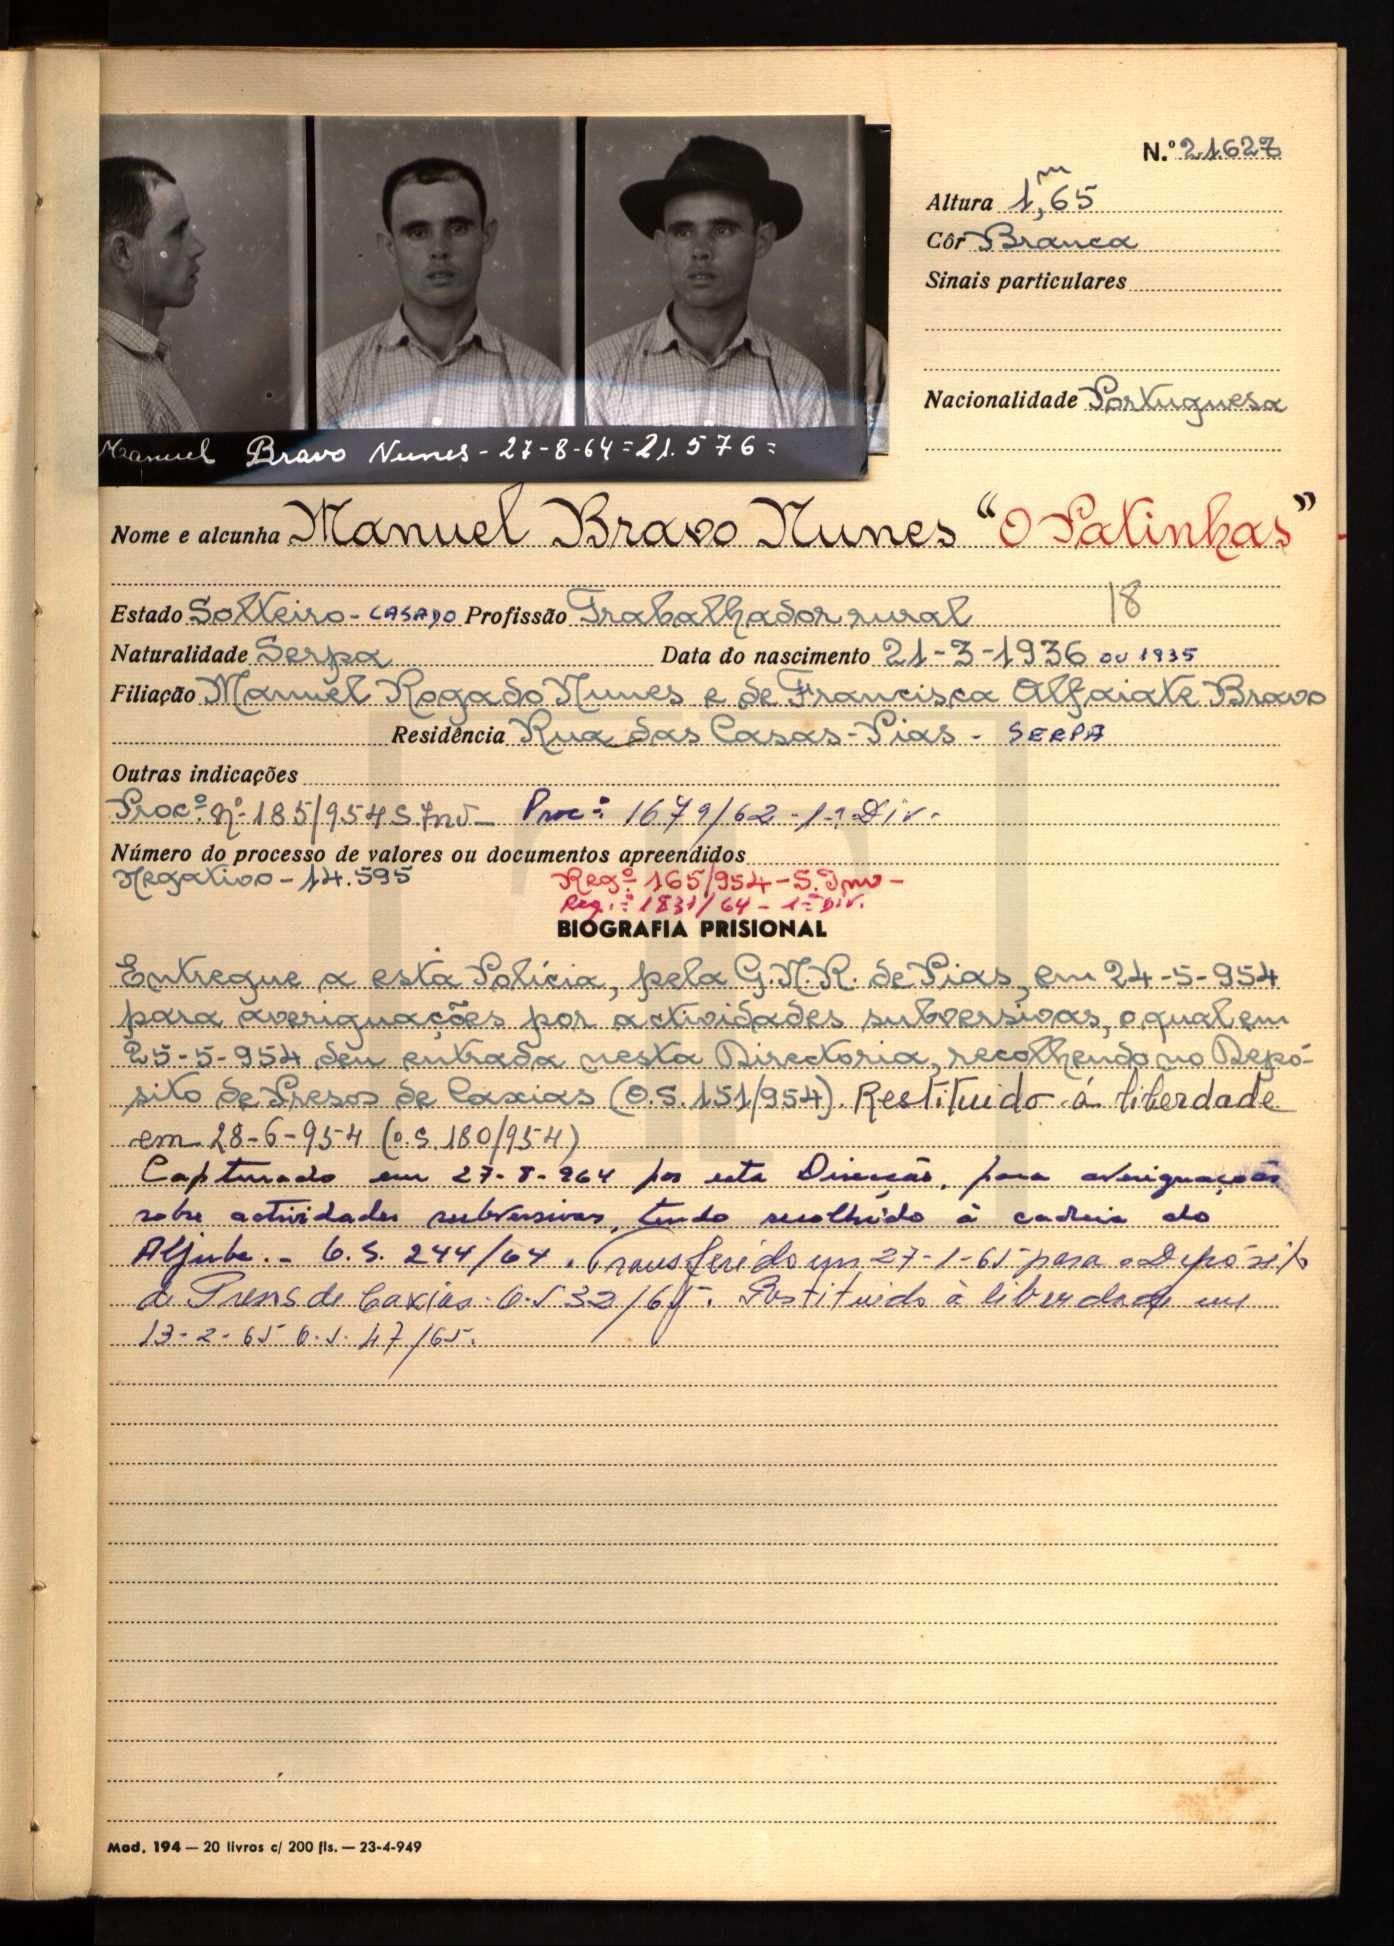 N.º 21627
Altura 1,m65
Côr Branca
Sinais particulares
Nacionalidade Portuguesa
Manuel Bravo Nunes - 27-8-64 = 21.576 =
Nome e alcunha Manuel Bravo Nunes "O Patinhas"
18
Estado Solteiro - CASADO Profissão Trabalhador rural
Naturalidade Serpa Data do nascimento 21-3-1936 OU 1935
Filiação Manuel Rogado Nunes e de Francisca Alfaiate Bravo
Residência Rua das Casas-Pias - SERPA
Outras indicações
Procº. nº. 185/954 S. Inv. Procº: 1679/62 - 1ª Div.
Número do processo de valores ou documentos apreendidos
Negativo - 14.595 Regº. 165/954 - S. Inv -
Reg.º 1831/64 - 1ª Div.
BIOGRAFIA PRISIONAL
Entregue a esta Polícia, pela G.N.R. de Pias, em 24-5-954
para averiguações por actividades subversivas, o qual em
25-5-954 deu entrada nesta Directoria, recolhendo no Depó-
sito de Presos de Caxias (O.S. 151/954). Restituido á liberdade
em 28-6-954 (O.S. 180/954)
Capturado em 27-8-964 por esta Direcção, para averiguações
sobre actividades subversivas, tendo recolhido à cadeia do
Aljube. - O.S. 244/64. Transferido em 27-1-65 para o Depósito
de Presos de Caxias. O.S 32/65. Restituido à liberdade em
13-2-65 O.S. 47/65.
Mod. 194 — 20 livros c/ 200 fls. — 23-4-949